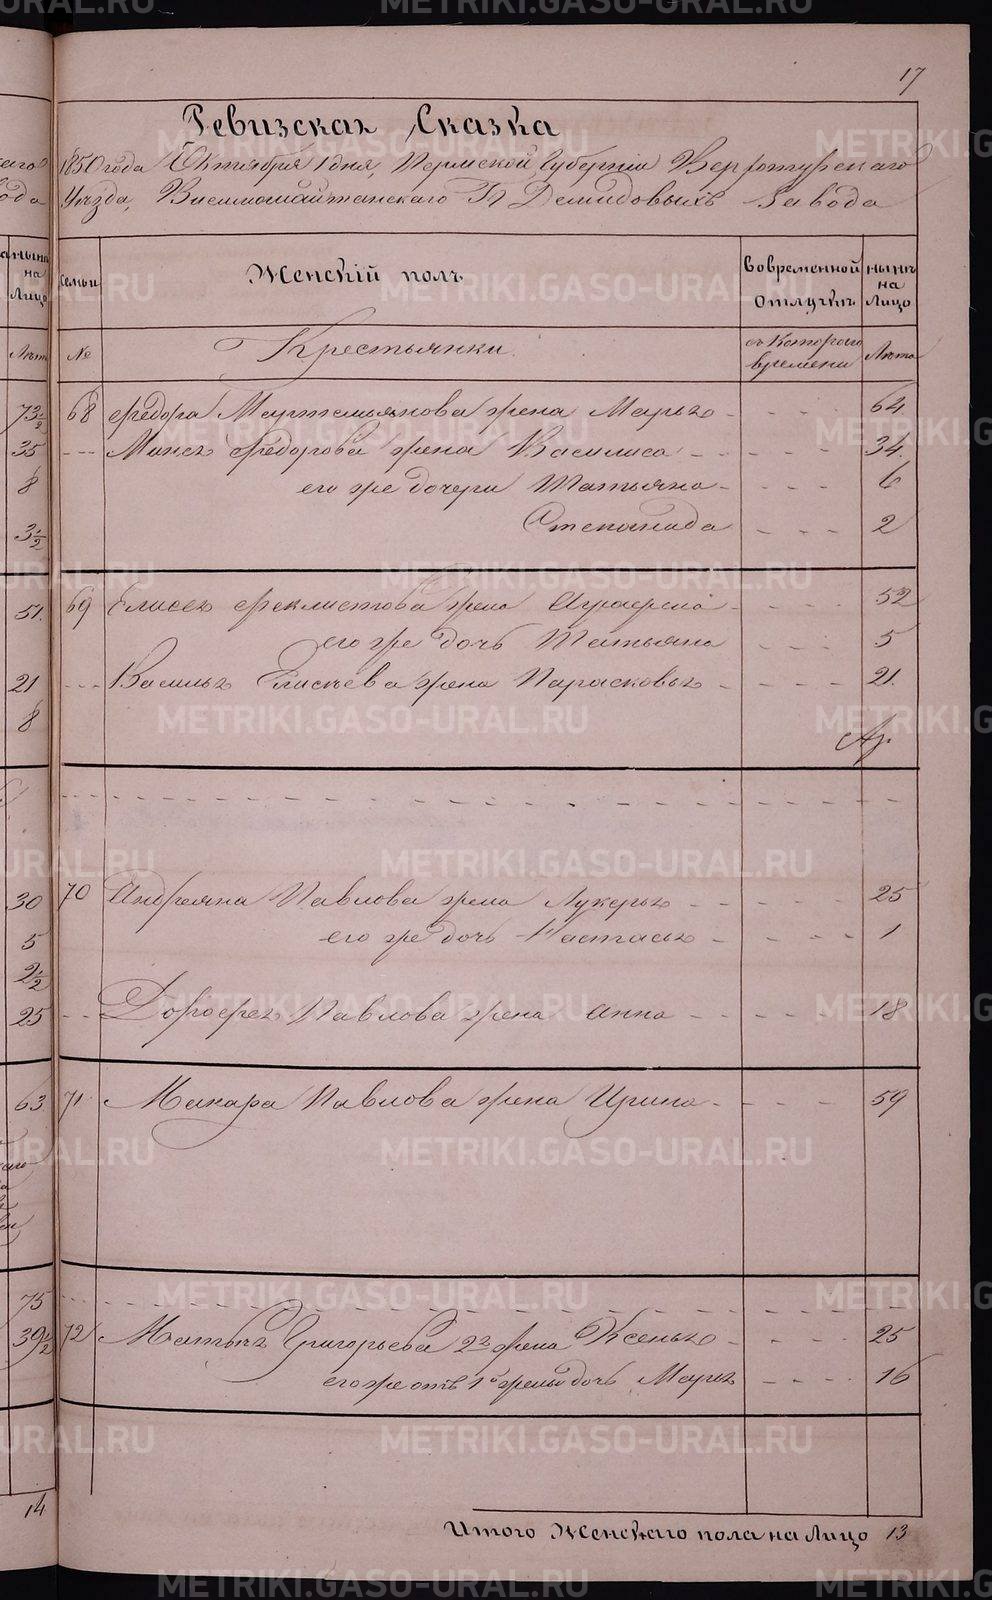 17
Ревизская Сказка
1850 года Октября 1 дня, Пермской Губернiи Верхотурскаго
Уѣзда, Висимошайтанскаго Гг Демидовыхъ Завода
Семьи
Женскiй полъ
Вовременной
отлучкѣ
нынѣ
на
Лицо
№
Крестьянки
съ Котораго
времени
Лѣта
68 Федора Мартемьянова жена Марья - - - - 64
- - - Моисея Федорова жена Василиса - - - - 34.
его же дочери Татьяна - - - - 6
Степанида - - - 2
69 Елисея Феклистова жена Аграфена - - - - 52
его же дочь Татьяна - - - 5
- - - Василья Елисѣева жена Парасковья - - - - 21.
70 Андреяна Павлова жена Лукерья - - - - 25
его же дочь Настасья - - - - 1
- - Дорофея Павлова жена Анна - - - - 18
71 Макара Павлова жена Ирина - - - - 59
72 Матвѣя Григорьева 2я жена Ксенья - - - - 25
его же отъ 1й жены дочь Марья - - - - 16
Итого Женскаго пола на Лицо 13
на
Лицо
Лѣта
73½
35
8
3½
51.
21
8
30
5
2½
25
63
75
39½
14
METRIKI.GASO-URAL.RU